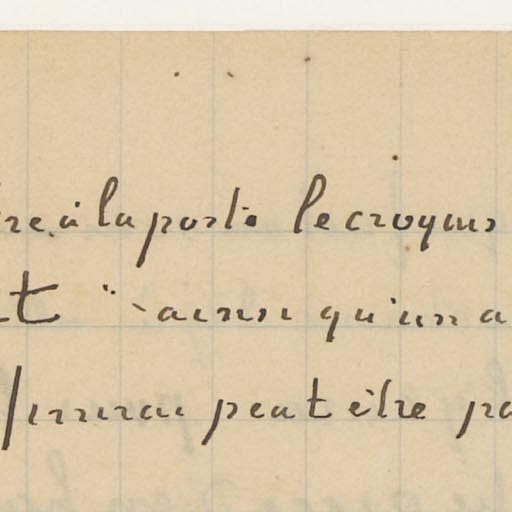 re à la poste le croquis
t " ainsi qu'un a
finirai peut être pa